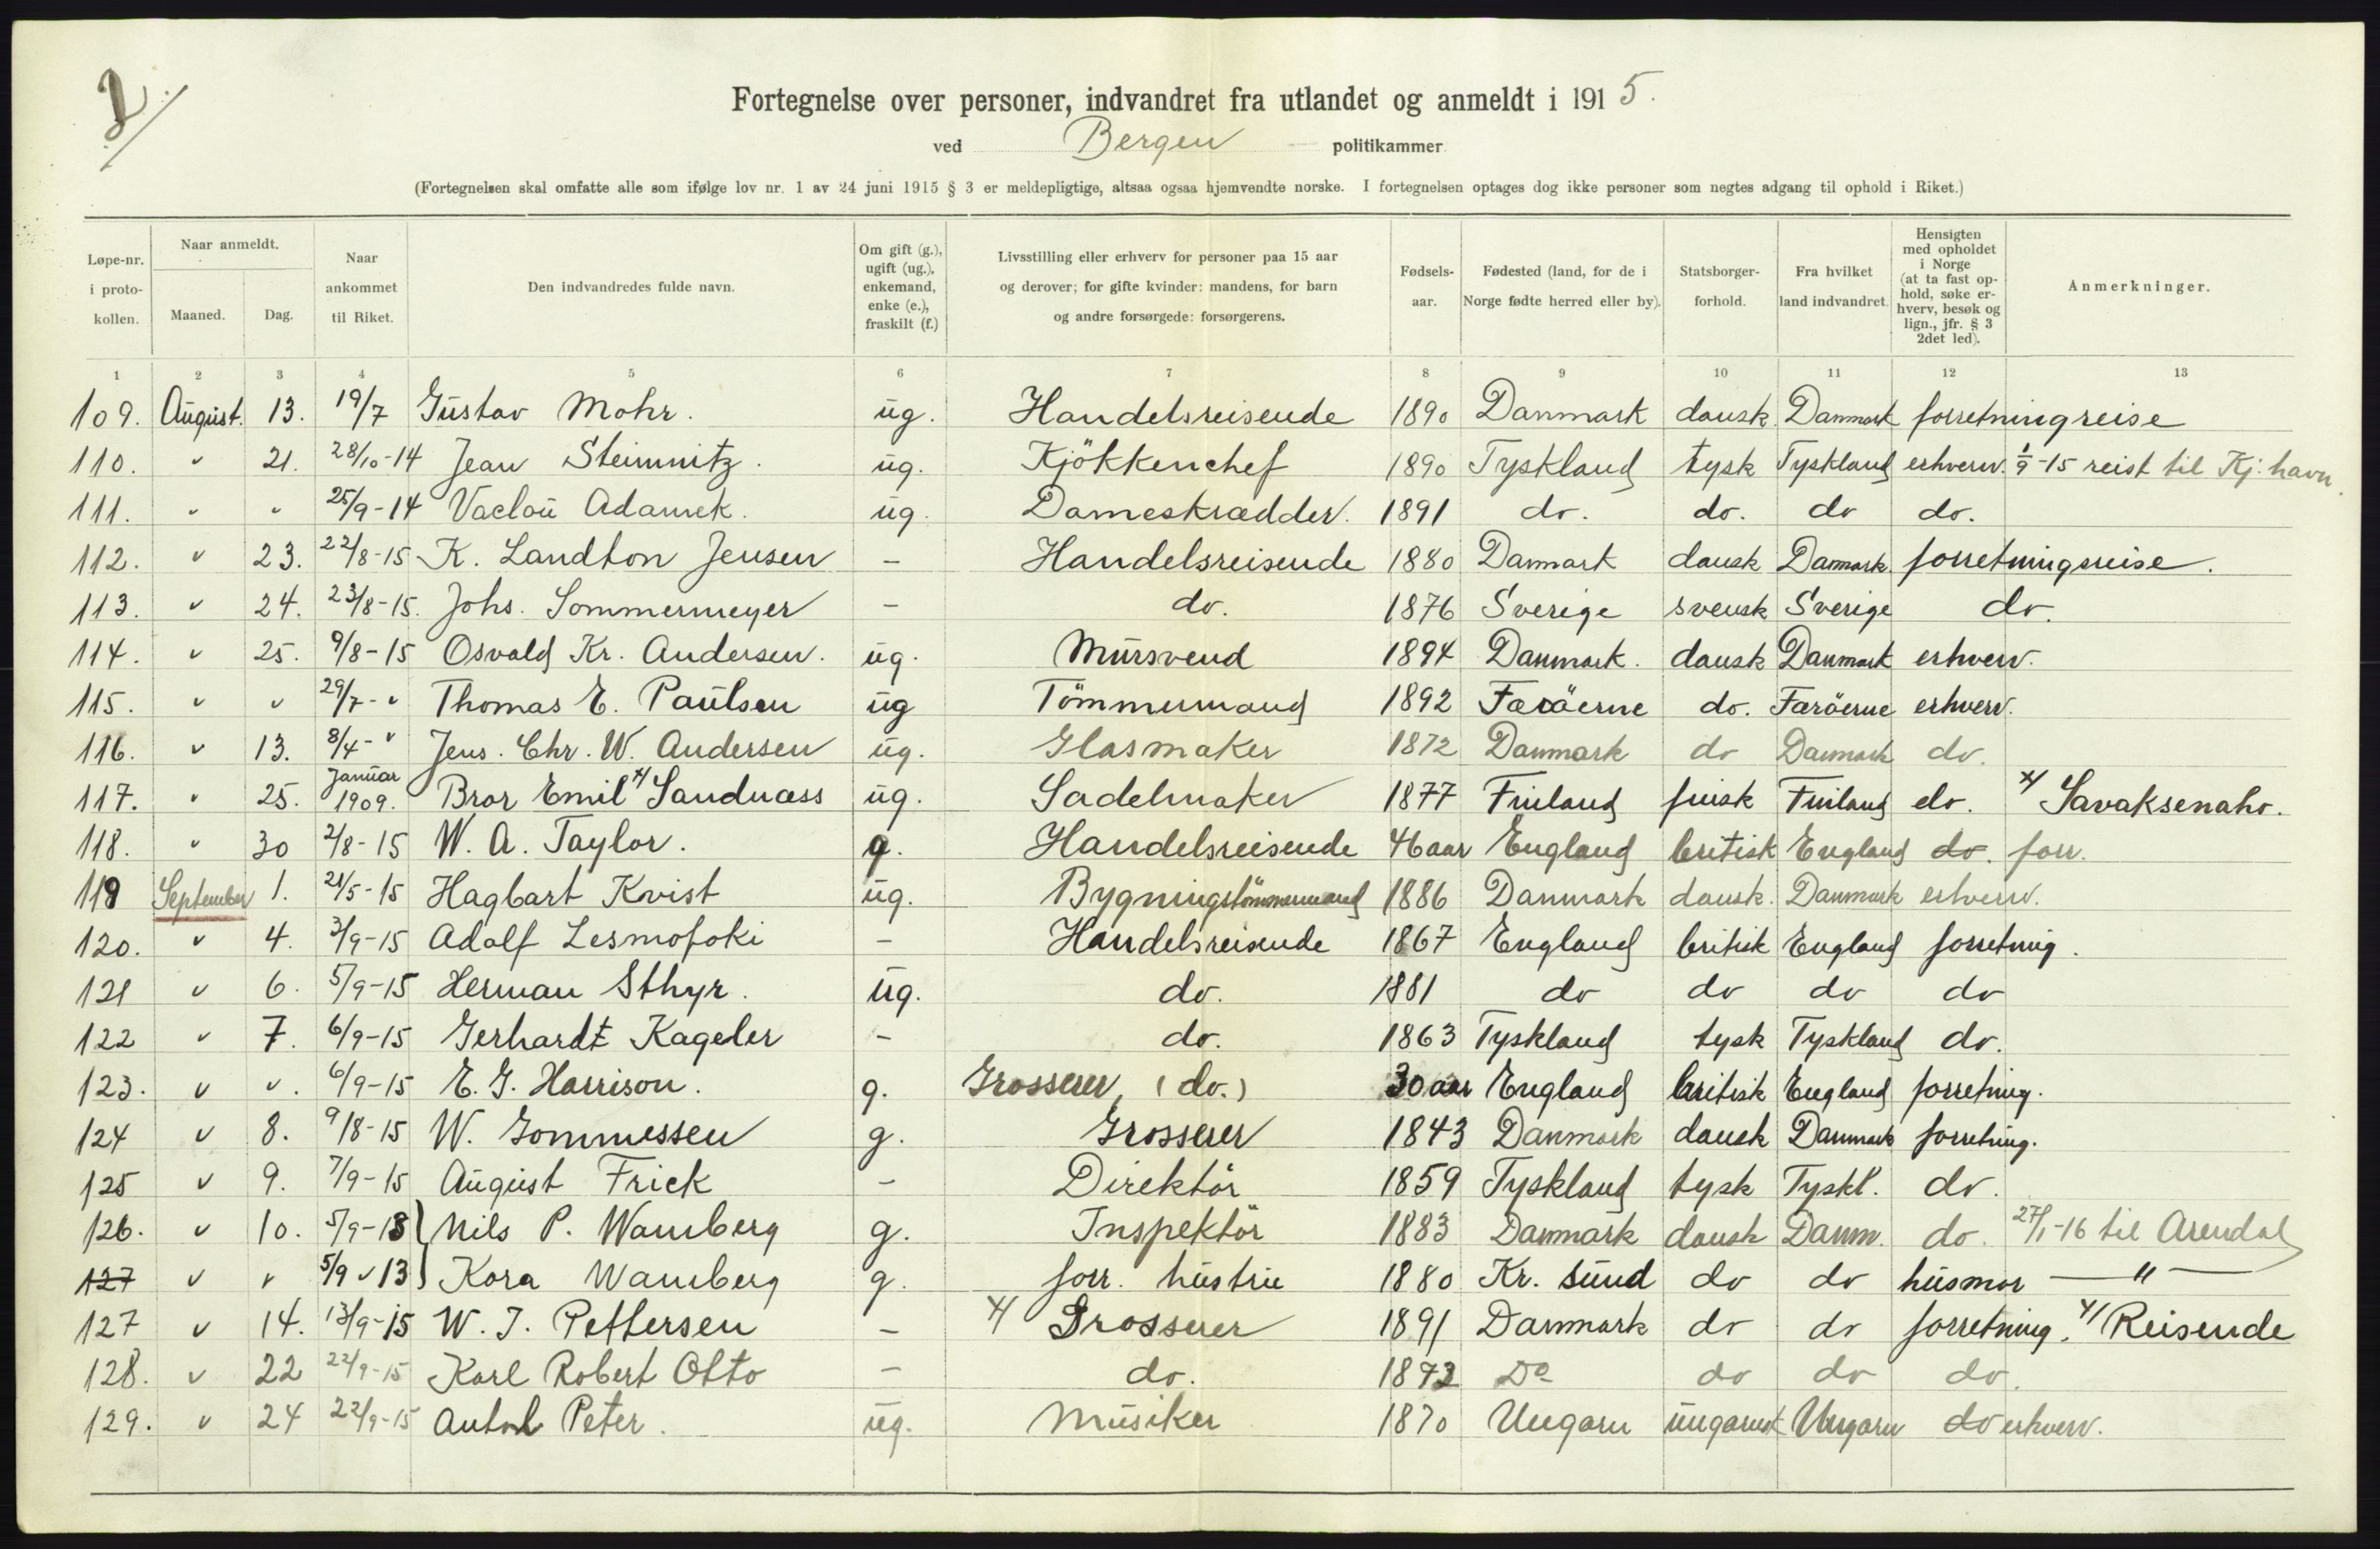 2/.
Fortegnelse over personer, indvandret fra utlandet og anmeldt i 1915.
ved Bergen politikammer
(Fortegnelsen skal omfatte alle som ifølge lov nr. 1 av 24 juni 1915 § 3 er meldepligtige, altsaa ogsaa hjemvendte norske. I fortegnelsen optages dog ikke personer som negtes adgang til ophold i Riket.)
Løpe-nr. i proto-kollen. Naar anmeldt. Maaned. Dag. Naar ankommet til Riket. Den indvandredes fulde navn. Om gift (g.), ugift (ug.), enkemand, enke (e.), fraskilt (f.) Livsstilling eller erhverv for personer paa 15 aar og derover; for gifte kvinder: mandens, for barn og andre forsørgede: forsørgerens. Fødsels-aar. Fødested (land, for de i Norge fødte herred eller by). Statsborger-forhold. Fra hvilket land indvandret. Hensigten med opholdet i Norge (at ta fast op-hold, søke er-hverv, besøk og lign., jfr. § 3 2det led). Anmerkninger.
1 2 3 4 5 6 7 8 9 10 11 12 13
109. August. 13. 19/7 Gustav Mohr. ug. Handelsreisende 1890 Danmark dansk Danmark forretningreise
110. " 21. 28/10-14 Jean Steimnitz. ug. Kjökkenchef 1890 Tyskland tysk Tyskland erhverv. 1/9-15 reist til Kj.havn.
111. " " 25/9-14 Vaclaú Adamek. ug. Dameskrædder. 1891 do. do. do do.
112. " 23. 22/8-15 K. Landton Jensen - Handelsreisende 1880 Danmark dansk Danmark forretningsreise.
113. " 24. 23/8-15. Johs. Sommermeyer - do. 1876 Sverige svensk Sverige do.
114. " 25. 9/8-15 Osvald Kr. Andersen. ug. Mursvend 1894 Danmark. dansk Danmark erhverv.
115. " " 29/7-" Thomas E. Paulsen ug Tömmermand 1892 Færöerne do. Færöerne erhverv.
116. " 13. 8/4-" Jens. Chr. W. Andersen ug. Glasmaker 1872 Danmark do Danmark do.
117. " 25. Januar 1909. Bror Emil x/ Sandnæss ug. Sadelmaker 1877 Finland finsk Finland do. x/ Savaksenaho.
118. " 30 2/8-15 W. A. Taylor. g. Handelsreisende 46 aar England britisk England do. forr.
119 September 1. 21/5-15 Hagbart Kvist ug. Bygningstömmermand 1886 Danmark dansk. Danmark erhverv.
120. " 4. 3/9-15 Adolf Lesmofoki - Handelsreisende 1867 England britisk England forretnig.
121 " 6. 5/9-15 Herman Sthyr. ug. do. 1881 do do do do
122 " 7. 6/9-15 Gerhardt Kageler - do. 1863 Tyskland tysk Tyskland do.
123. " ". 6/9-15 E. G. Harrison. g. Grosserer, (do.) 30 aar England britisk England forretning.
124 " 8. 9/8-15 W. Gommessen g. Grosserer 1843 Danmark dansk Danmark forretning.
125 " 9. 7/9-15 August Frick - Direktör 1859 Tyskland tysk Tyskl. do.
126. " 10. 5/9-13 Nils P. Wamberg g. Inspektör 1883 Danmark dansk Danm. do. 27/1-16 til Arendal
127 " " 5/9 " 13 Kora Wamberg g. forr. hustru 1880 Kr. sund do do husmor — " —
127 " 14. 13/9-15 W. J. Pettersen - x/ Grosserer 1891 Danmark do do forretning. x/ Reisende
128. " 22 22/9-15 Karl Robert Otto - do. 1872 Do do do do.
129. " 24 22/9-15 Anton Peter. ug. Musiker 1870 Ungarn ungarsk Ungarn do erhverv.